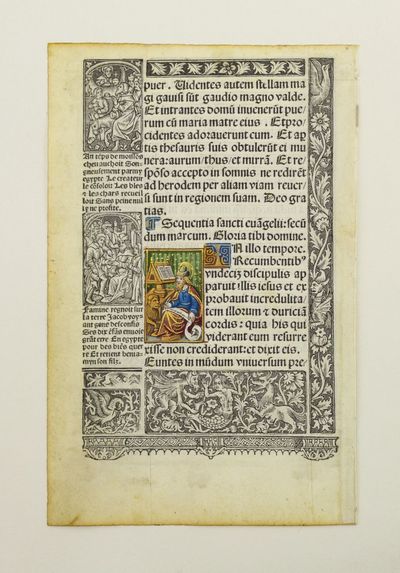 puer. Uidentes autem stellam ma
gi gauisi sūt gaudio magno valde.
Et intrantes domū inuenerūt pue
rum cū maria matre eius. Et pro
cidentes adorauerunt eum. Et ap
tis thesauris suis obtulerūt ei mu
nera: aurum/thus/et mirrā. Et re
spōso accepto in somnis ne redirēt
ad herodem per aliam viam reuer
si sunt in regionem suam. Deo gra
tias.
Sequentia sancti euāgelii: secū
dum marcum. Gloria tibi domine.
IN illo tempore.
Recumbentibꝰ
vndecī discipulis ap
paruit illis iesus et ex
probauit incredulita
tem illorum et duriciā
cordis: quia his qui
viderant eum resurre
xisse non crediderant: et dixit eis.
Euntes in mūdum vniuersum pre
An tēps de moisses
cheuauchoit Son
gneusement parmy
egypte Le createur
le cōsoloit Les bles
et les chars recueil
loit Sans peine nul
ly ne profite.
Famine regnoit sur
la terre Jacob voy
ant ses
Ses dix filz enuoie
grāt erre En egypte
pour des blez quer
re Et retient benia
myn son filz.